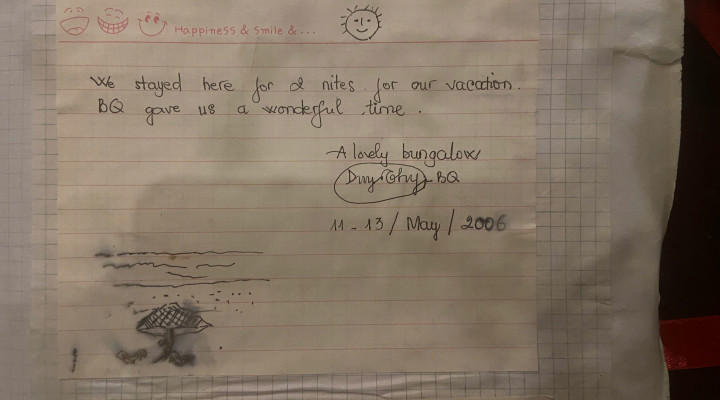 Happiness & Smile & ...
We stayed here for 2 nites for our vacation.
BQ gave us a wonderful time.
A lovely bungalow
BQ
11 - 13 / May / 2006